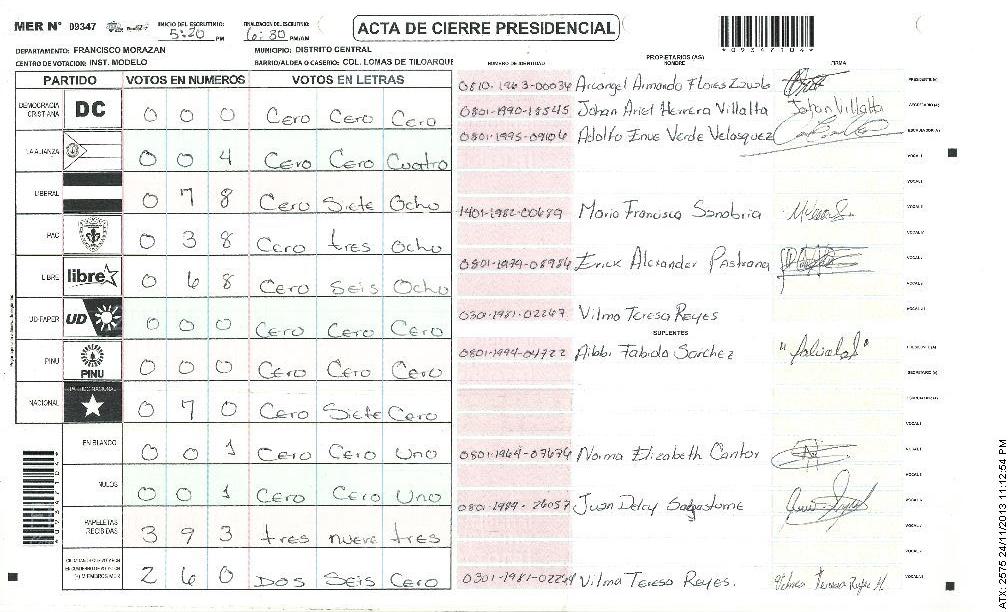 MER N° 09347
INICIO DEL ESCRUTINIO: 5:20 PM
FINALIZACION DEL ESCRUTINIO: 6:30 PM/AM
ACTA DE CIERRE PRESIDENCIAL
09347104
DEPARTAMENTO: FRANCISCO MORAZAN
MUNICIPIO: DISTRITO CENTRAL
CENTRO DE VOTACION: INST. MODELO
BARRIO/ALDEA O CASERIO: COL. LOMAS DE TILOARQUE
PARTIDO VOTOS EN NUMEROS VOTOS EN LETRAS
DEMOCRACIA CRISTIANA DC 0 0 0 Cero Cero Cero
LA ALIANZA 0 0 4 Cero Cero Cuatro
LIBERAL 0 7 8 Cero Siete Ocho
PAC 0 3 8 Cero tres Ocho
LIBRE libre 0 6 8 Cero Seis Ocho
UD-FAPER UD 0 0 0 Cero Cero Cero
PINU PINU 0 0 0 Cero Cero Cero
NACIONAL PARTIDO NACIONAL 0 7 0 Cero Siete Cero
EN BLANCO 0 0 1 Cero Cero Uno
NULOS 0 0 1 Cero Cero Uno
PAPELETAS RECIBIDAS 3 9 3 tres nueve tres
2 6 0 Dos Seis Cero
NUMERO DE IDENTIDAD PROPIETARIOS (AS) NOMBRE FIRMA
0810-1963-00034 Arcangel Armando Flores PRESIDENTE (A)
0801-1990-18545 Johan Ariel Herrera Villalta Johan Villalta SECRETARIO (A)
0801-1995-09106 Adolfo Enue Verde Velasquez ESCRUTADOR (A)
VOCAL I
1401-1982-00689 Mario Francisco Sanabria
0801-1979-08984 Erick Alexander Pastrana
0301-1981-02267 Vilma Teresa Reyes
SUPLENTES
0801-1994-04722 Aibbi Fabida Sanchez
SECRETARIO (A)
0801-1964-07674 Norma Elizabeth Cantor
0801-1989-26057 Juan Delcy Sagastume
0301-1981-02267 Vilma Teresa Reyes.
ATX: 2575 24/11/2013 11:12:54 PM